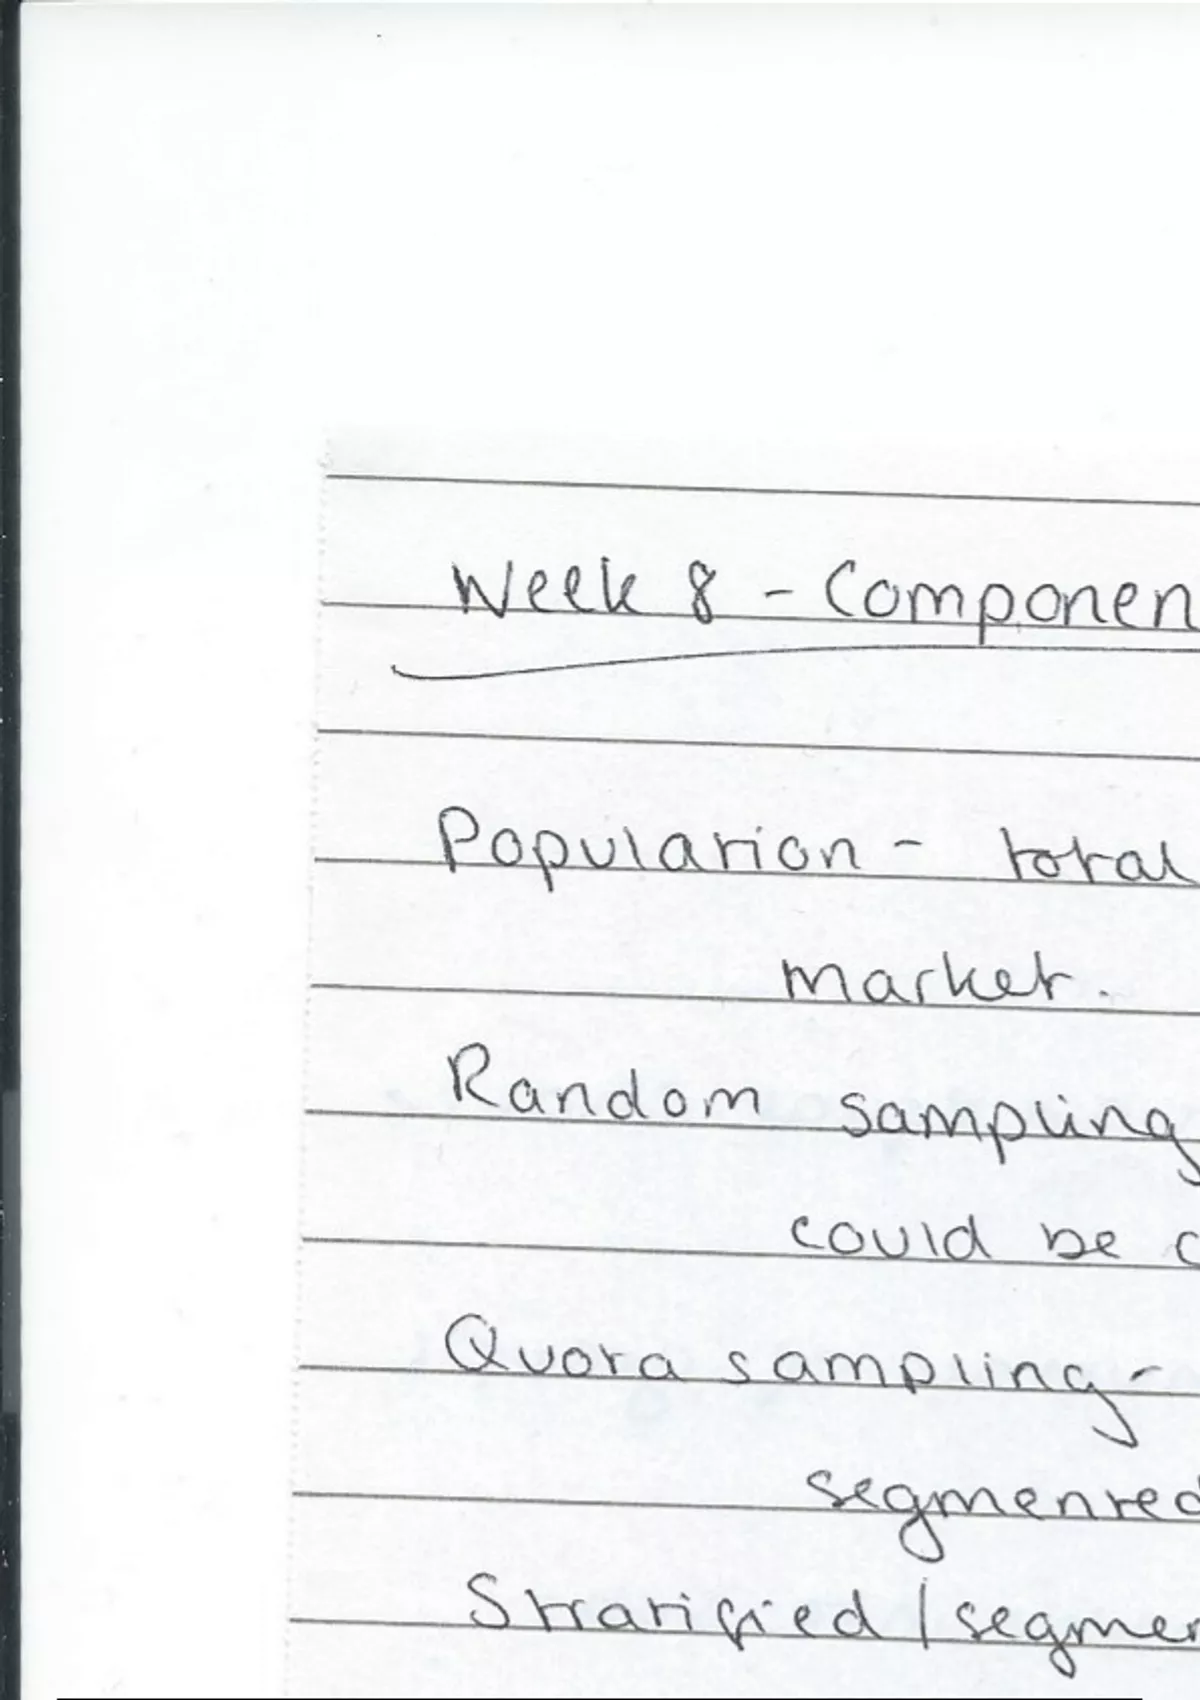 Week 8 - Componen
Population - total
market.
Random sampling
could be c
Quota sampling -
segmented
Stratified / segmen